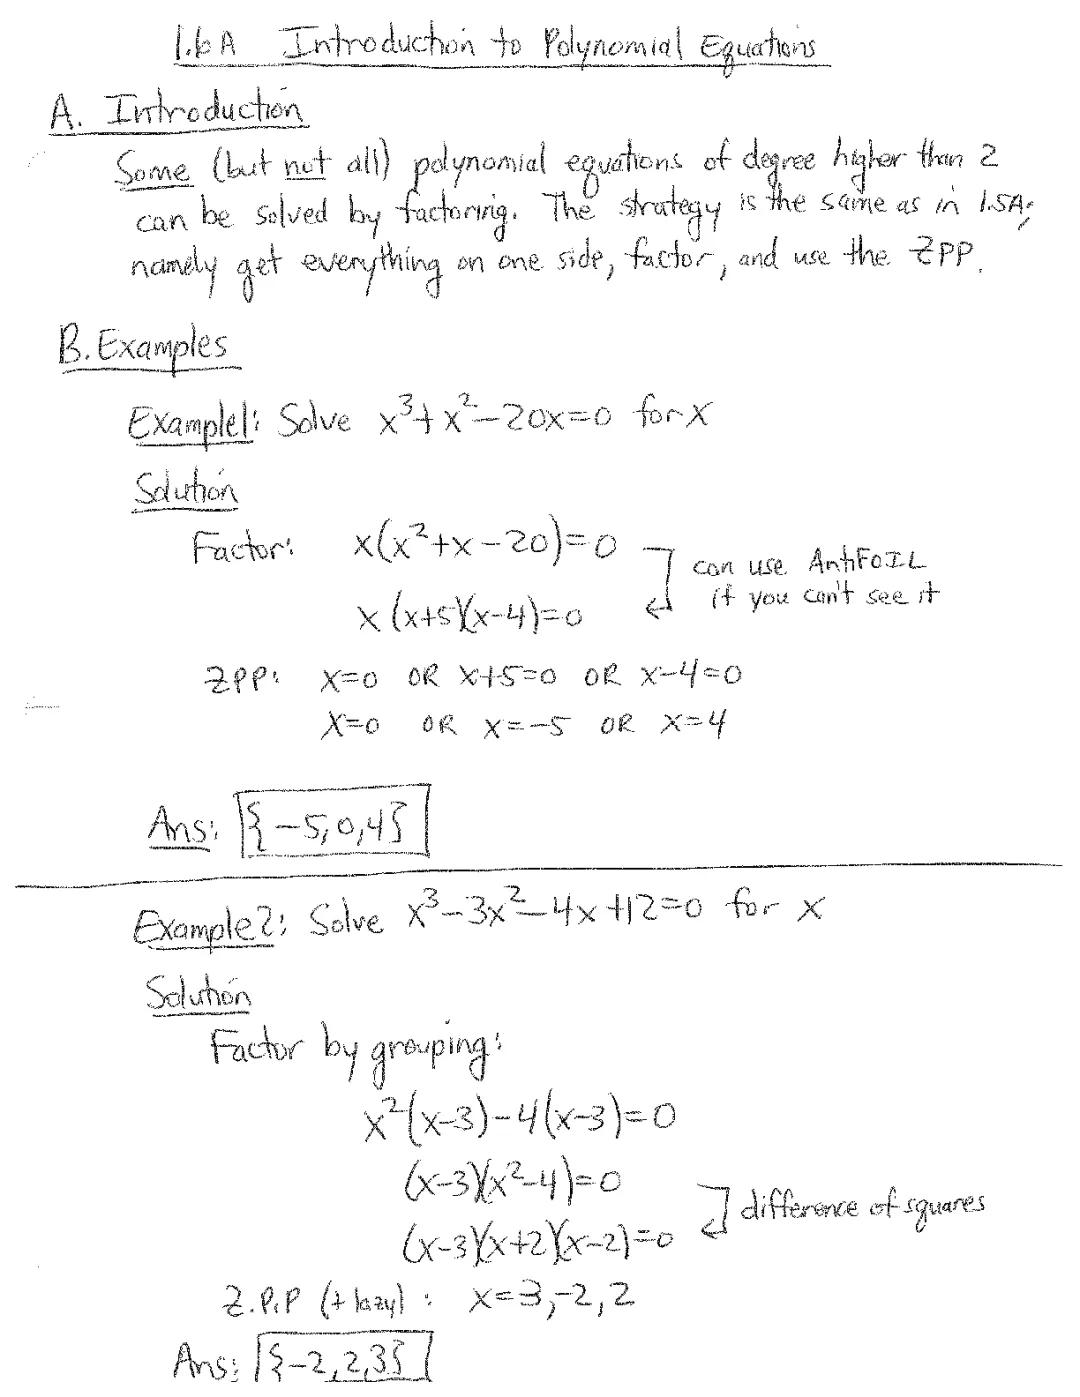 1.6A Introduction to Polynomial Equations
A. Introduction
Some (but not all) polynomial equations of degree higher than 2
can be solved by factoring. The strategy is the same as in 1.5A;
namely get everything on one side, factor, and use the ZPP.
B. Examples
Example1: Solve x³+x²-20x=0 for x
Solution
Factor: x(x²+x-20)=0
can use AntiFOIL
if you can't see it
x(x+5)(x-4)=0
ZPP: x=0 OR x+5=0 OR x-4=0
x=0 OR x=-5 OR x=4
Ans: {-5,0,4}
Example2: Solve x³-3x²-4x+12=0 for x
Solution
Factor by grouping:
x²(x-3)-4(x-3)=0
(x-3)(x²-4)=0
difference of squares
(x-3)(x+2)(x-2)=0
Z.P.P (+ lazy): x=3,-2,2
Ans: {-2,2,3}